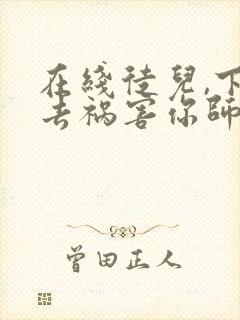 在线徒儿,下
去祸害你師
曾田正人